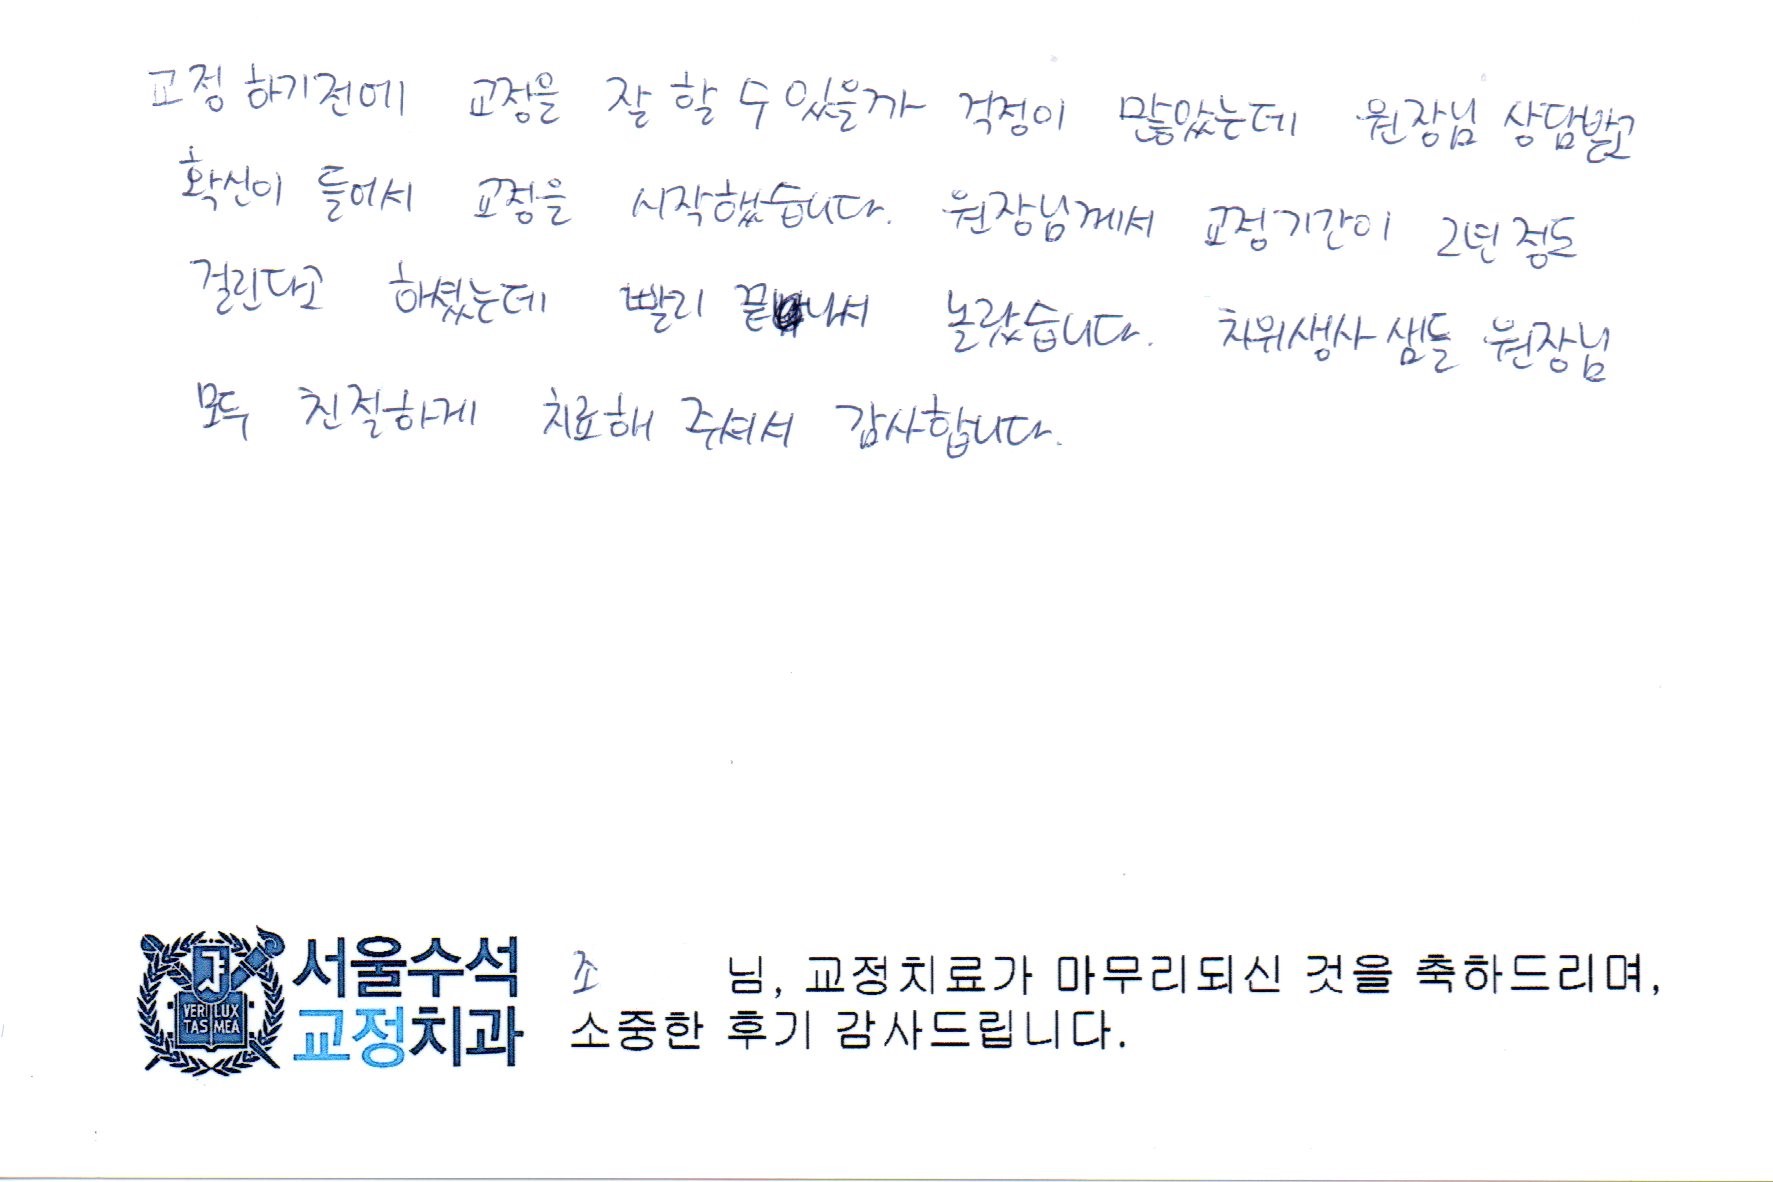 교정 하기전에 교정을 잘 할 수 있을까 걱정이 많았는데 원장님 상담받고
확신이 들어서 교정을 시작했습니다. 원장님께서 교정기간이 2년 정도
걸린다고 하셨는데 빨리 끝나서 놀랐습니다. 치위생사 샘들 원장님
모두 친절하게 치료해 주셔서 감사합니다.
서울수석
교정치과
VERI LUX
TAS MEA
조 님, 교정치료가 마무리되신 것을 축하드리며,
소중한 후기 감사드립니다.